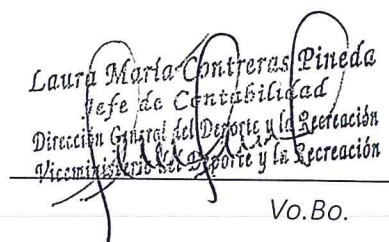 Laura María Contreras Pineda
Jefe de Contabilidad
Dirección General del Deporte y la Recreación
Viceministerio del Deporte y la Recreación
Vo.Bo.